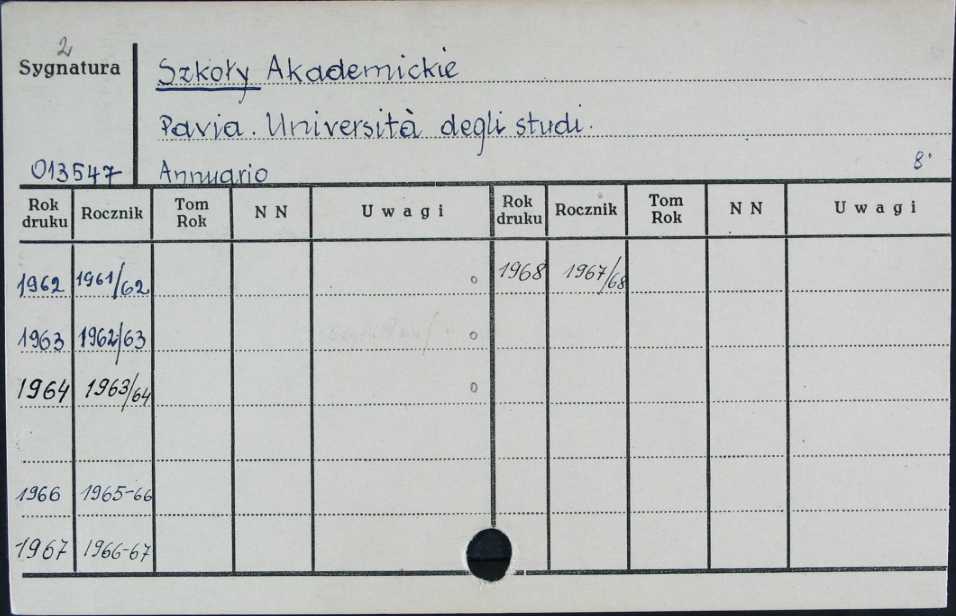 2
Sygnatura
Szkoły Akademickie
Pavia. Università degli studi.
013547 Annuario 8°
Rok druku Rocznik Tom Rok N N Uwagi Rok druku Rocznik Tom Rok N N Uwagi
1962 1961/62 o 1968 1967/68
1963 1962/63 o
1964 1963/64 o
1966 1965-66
1967 1966-67